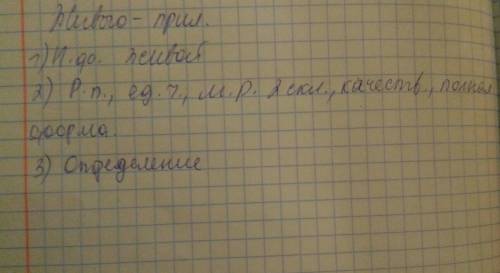 Живого - прил.
1) Н.ф. живой
2) Р.п., ед.ч., м.р. 2 скл., качеств., полная
форма.
3) Определение